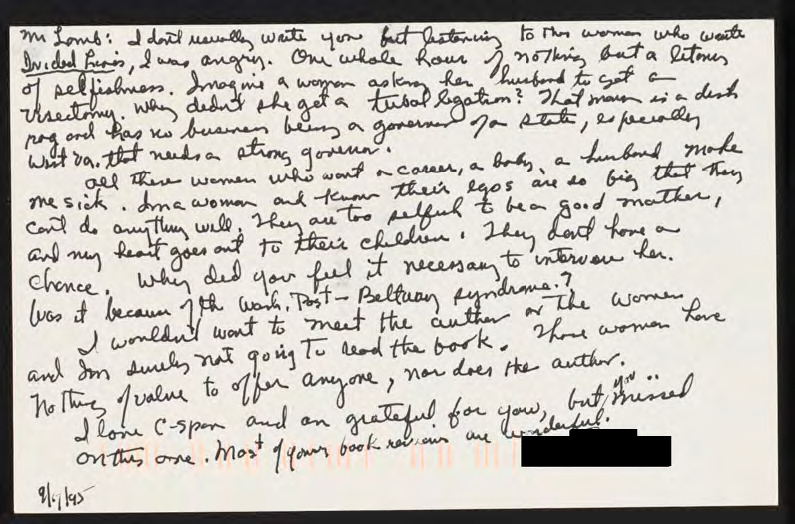 Mr Lamb: I don't usually write you but listening to this woman who wrote
Divided Lives, I was angry. One whole hour of nothing but a litany
of selfishness. Imagine a woman asking her husband to get a
visectomy. Why didn't she get a tubal ligation? That man is a dish
rag and has no business being a governor of a state, especially
West Va. that needs a strong governor.
All these women who want a career, a baby, a husband make
me sick. I'm a woman and know their egos are so big that they
can't do anything well. They are too selfish to be a good mother,
and my heart goes out to their children. They don't have a
chance. Why did you feel it necessary to interview her.
Was it because of the Wash. Post - Beltway syndrome?
I wouldn't want to meet the author or the women
and I'm surely not going to read the book. Those women have
nothing of value to offer anyone, nor does the author.
I love C-span and am grateful for you, but you missed
on this one. Most of your book reviews are wonderful.